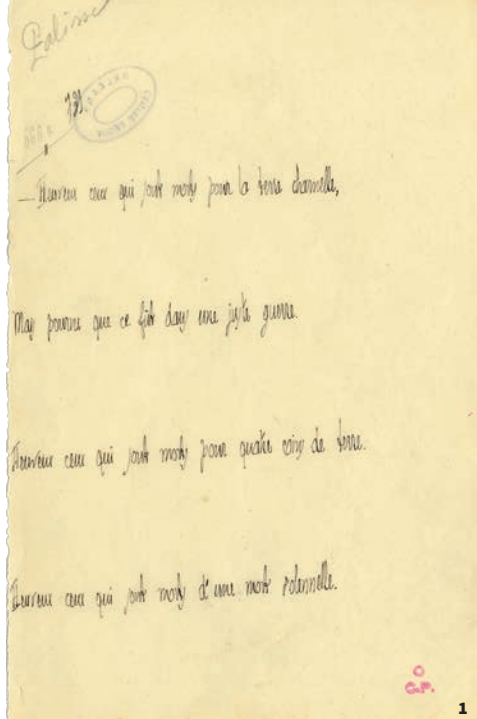 731
— Heureux ceux qui sont morts pour la terre charnelle,
Mais pourvu que ce fût dans une juste guerre.
Heureux ceux qui sont morts pour quatre coins de terre.
Heureux ceux qui sont morts d'une mort solennelle.
C.P.
1